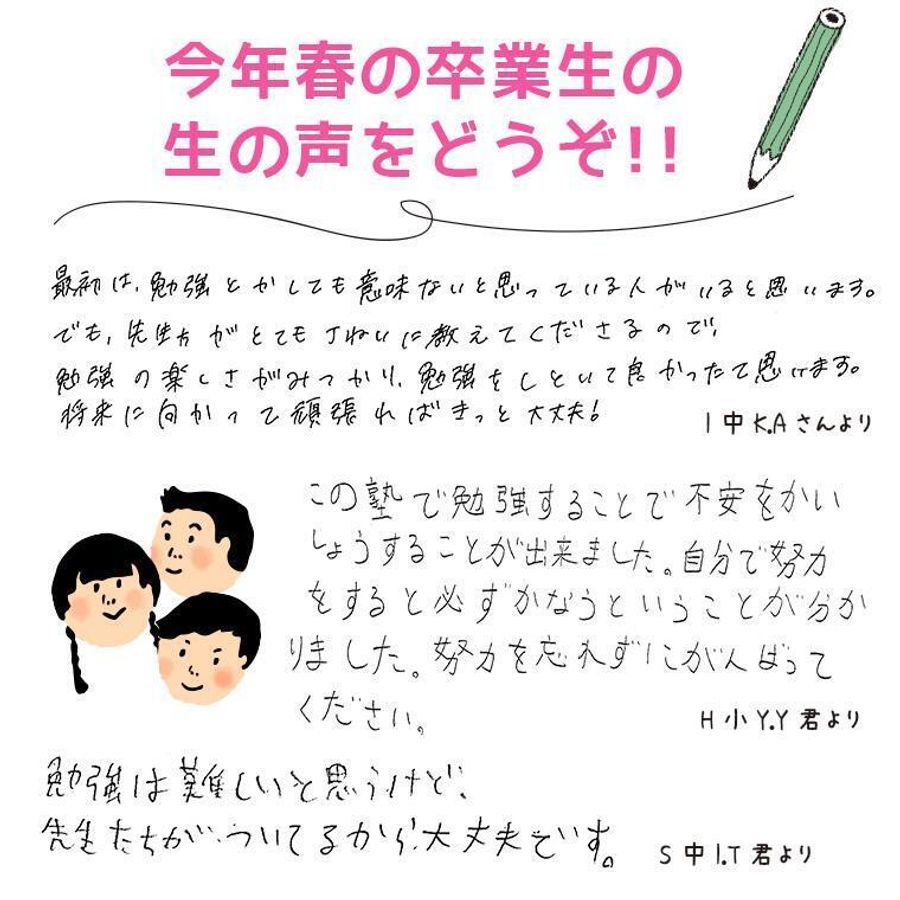 今年春の卒業生の
生の声をどうぞ!!
最初は、勉強とかしても意味ないと思っている人がいると思います。
でも、先生方がとてもていねいに教えてくださるので、
勉強の楽しさがみつかり、勉強をしといて良かったて思います。
将来に向かって頑張ればきっと大丈夫!
I中K.Aさんより
この塾で勉強することで不安をかい
しょうすることが出来ました。自分で努力
をすると必ずかなうということが分か
りました。努力を忘れずにがんばって
ください。
H小Y.Y君より
勉強は難しいと思うけど、
先生たちがついてるから大丈夫です。
S中I.T君より